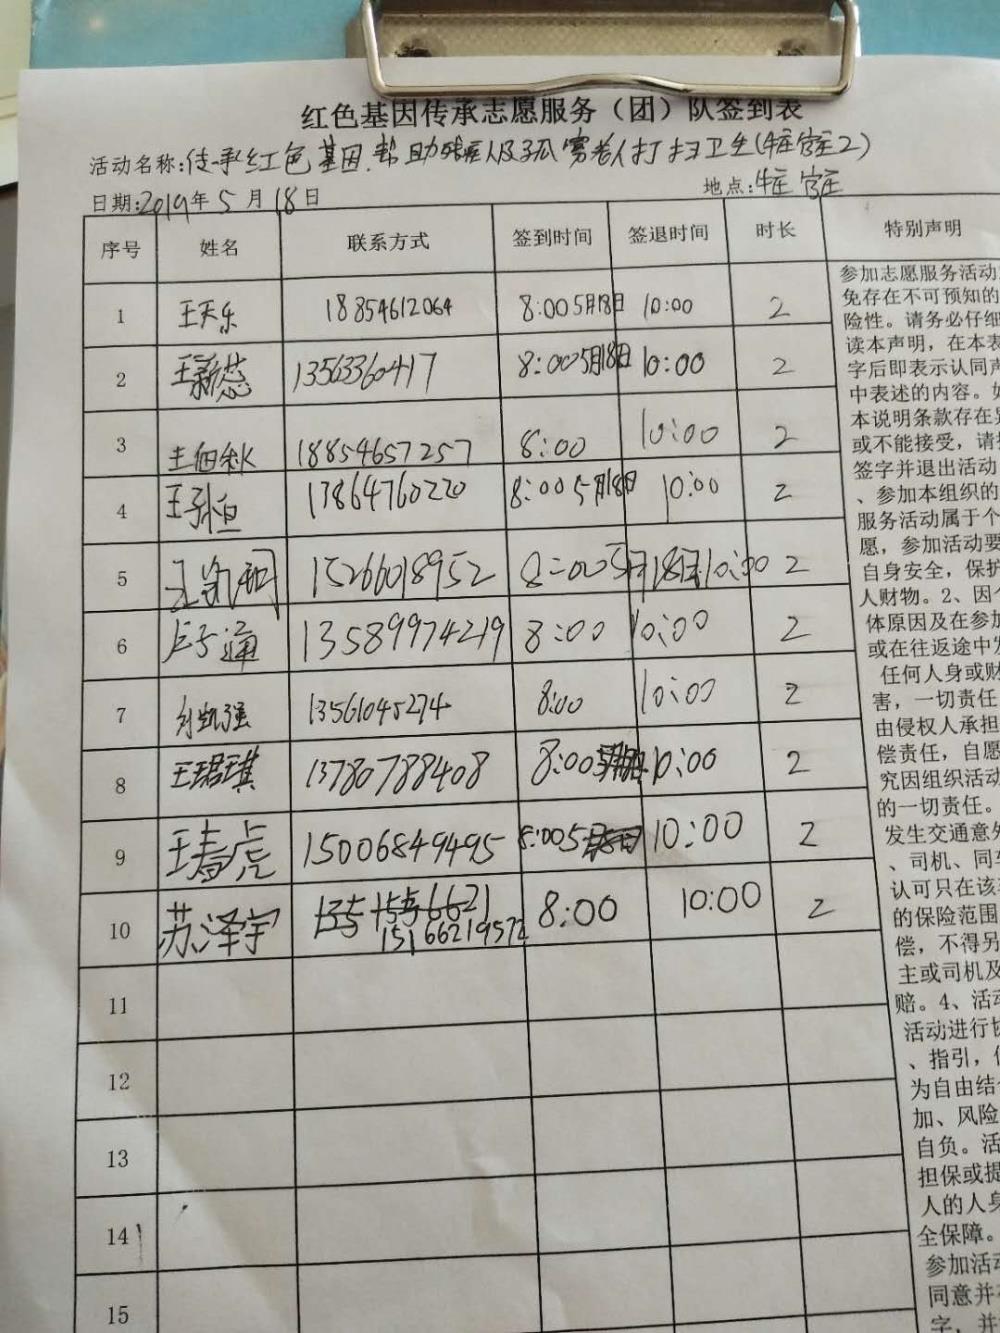 红色基因传承志愿服务（团）队签到表
活动名称:传承红色基因.帮助残疾人及孤寡老人打扫卫生(牛庄2)
日期:2019年5月18日 地点:牛庄
序号 姓名 联系方式 签到时间 签退时间 时长 特别声明
1 王天乐 18854612064 8:00 5月18日 10:00 2
2 王新蕊 13563360417 8:00 5月18日 10:00 2
3 18854657257 8:00 10:00 2
4 王子恒 13864760220 8:00 5月18日 10:00 2
5 15266018952 8:00 5月18日 10:00 2
6 卢子通 13589974219 8:00 10:00 2
7 刘凯强 13561045274 8:00 10:00 2
8 王珺琪 13780788408 8:00 10:00 2
9 王春虎 15006849495 8:00 5 10:00 2
10 苏泽宇 15166219572 8:00 10:00 2
11
12
13
14
15
参加志愿服务活动
免存在不可预知的
险性。请务必仔细
读本声明，在本表
字后即表示认同声
中表述的内容。如
本说明条款存在异
或不能接受，请
签字并退出活动
、参加本组织的
服务活动属于个
愿，参加活动要
自身安全，保护
人财物。2、因个
体原因及在参加
或在往返途中发
任何人身或财
害，一切责任
由侵权人承担
偿责任，自愿
究因组织活动
的一切责任。
发生交通意外
、司机、同车
认可只在该
的保险范围
偿，不得另
主或司机及
赔。4、活动
活动进行协
、指引，
为自由结
加、风险
自负。活
担保或提
人的人身
全保障。
参加活动
同意并
字，并